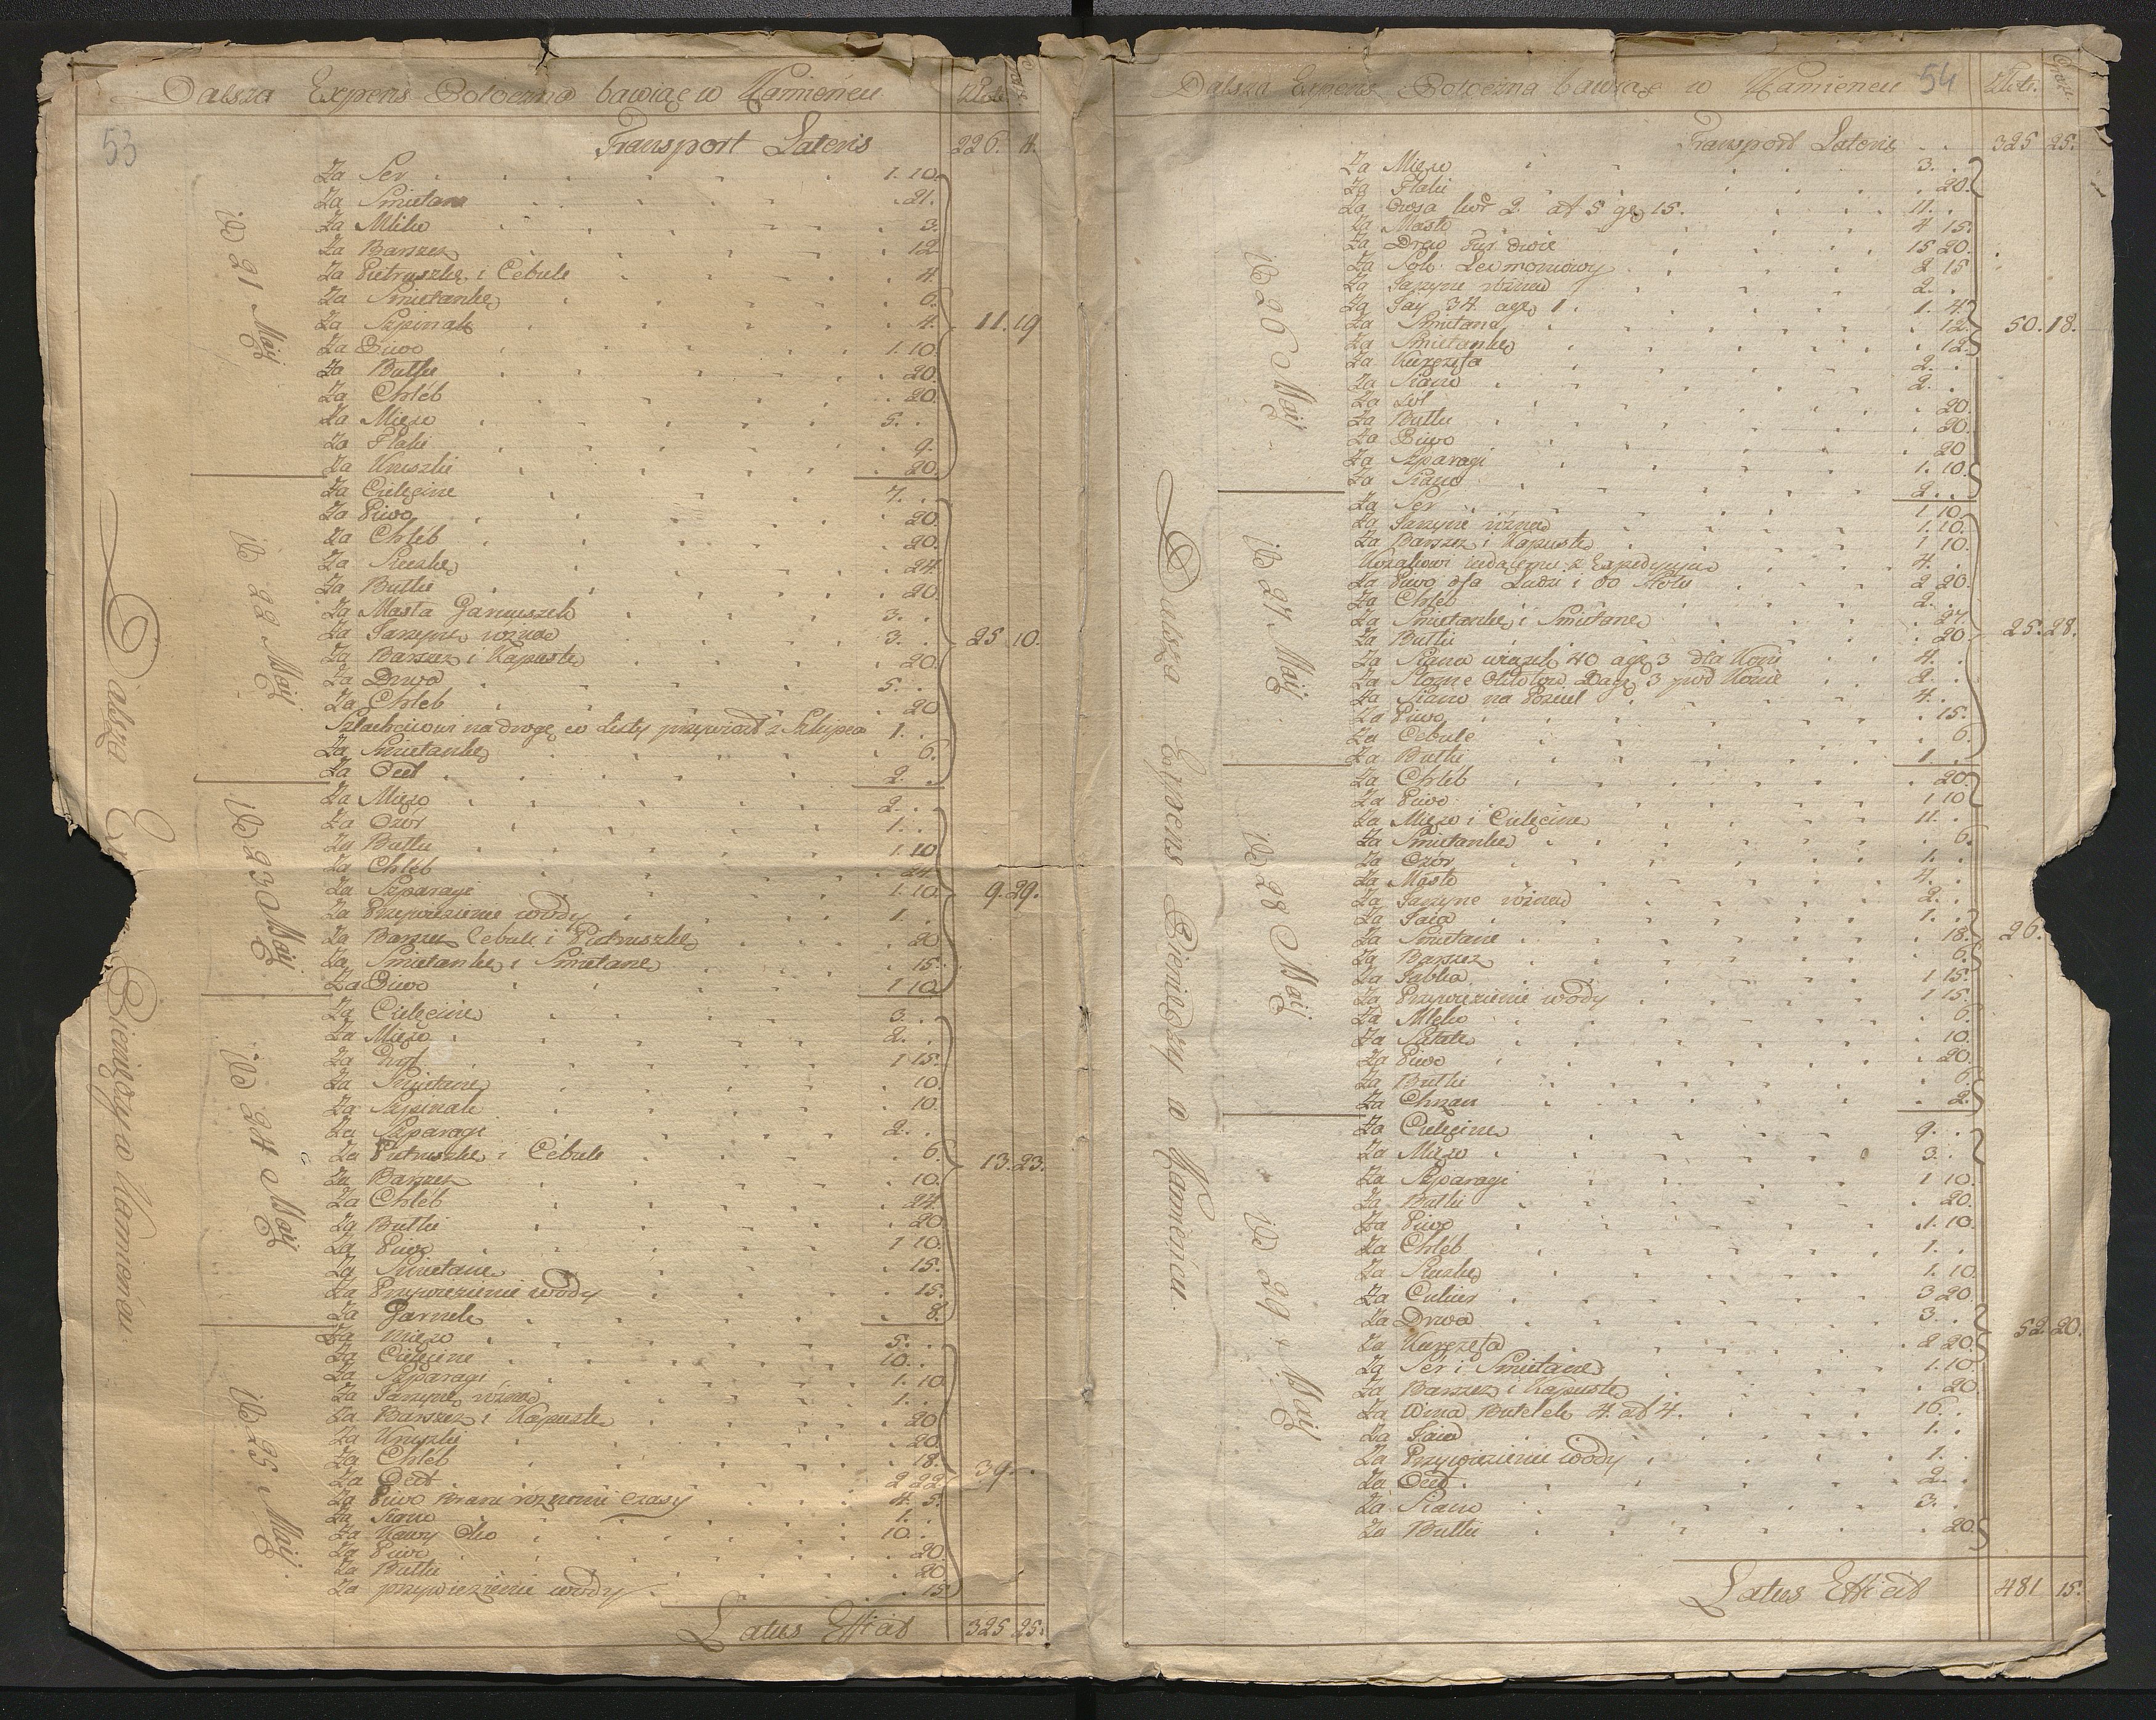 Dalsza Expens Potoczna bawiąc w Kamieńcu
53
Transport Lateris 226. 4.
Dalsza Expens Pieniędzy w Kamieńcu.
die 21 Maij
Za Ser 1. 10.
Za Smietane 21.
Za Mliko 3.
Za Barszcz 12
Za Pietruszkę i Cebule 4.
Za Smietankę 6.
Za Szpinak 4. 11. 19
Za Piwo 1. 10.
Za Bułki 20.
Za Chléb 20.
Za Mięso 5.
Za Flaki 9.
Za Kruszki 20.
die 22 Maij
Za Cielęcine 7.
Za Piwo 20.
Za Chléb 20.
Za Sieczkę 24.
Za Bułki 20.
Za Masła Garnuszek 3.
Za Jarzyne rózna 3. 25 10.
Za Barszcz i Kapustę 20.
Za Drwa 5.
Za Chleb 20
Szlachcicowi na drogę co Listy przywiozł z Sklupca 1.
Za Smietankę 6.
Za Ocet 2.
die 23 Maij
Za Mięso 2.
Za Ozór 1.
Za Bułki 1. 10
Za Chléb 24.
Za Szparagi 1. 10. 9. 29.
Za Przywiezienie wody 1.
Za Barszcz Cebule i Pietruszkę 20
Za Smietankę i Smietane 15.
Za Piwo 1 10.
die 24 Maij
Za Cielęcine 3.
Za Mięso 2.
1 15.
Za Smietanę 10.
Za Szpinak 10.
Za Szparagi 2.
Za Pietruszkę i Cebule 6. 13. 23.
Za Barszcz 10.
Za Chleb 24.
Za Bułki 20.
Za Piwo 1 10.
Za Smietane 15.
Za Przywiezienie wody 15.
Za Garnek 8.
die 25 Maij
Za Mięso 5.
Za Cielęcine 10.
Za Szparagi 1. 10
Za Jarzynę rózna 1.
Za Barszcz i Kapustę 20
Za Kruszki 20.
Za Chléb 18.
Za Ocet 2 22. 39.
Za Piwo brane roznemi czasy 4. 5.
Za Siano 1.
Za Kawy Oko 10.
Za Piwo 20.
Za Bułki 20
Za przywiezienie wody 15
Latus Efficit 325 25.
Dalsza Expens Potoczna bawiąc w Kamieńcu 54 Złote. Grosz
Transport Lateris 325 25.
Dalsza Expens Pieniędzy w Kamieńcu.
die 26 Maij
Za Mięso 3.
Za Flaki 20.
Za Owsa kor 2. at 5 gr 15. 11.
Za Masło 4 15.
Za Drew fur dwie 15 20.
Za Sok Lemoniowy 2 15
Za Jarzyne rózna 2.
Za Jay 34 agr 1. 1. 4.
Za Smietane 12. 50. 18.
Za Smietankę 12.
Za Kurczęta 2.
Za Siano 2.
Za Sol 20.
Za Bułki 20.
Za Piwo 20
Za Szparagi 1. 10.
Za Siano 2.
die 27 Maij
Za Sér 1 10.
Za Jarzyne rózna 1. 10.
Za Barszcz i Kapustę 1 10.
Kozakowi iedącemu z Expedycyia 4.
Za Piwo dla Ludzi i do Stołu 2 20.
Za Chléb 2.
Za Smietankę i Smietanę 27.
Za Bułki 20. 25. 28.
Za Siana wiązek 40 agr 3 dla Koni 4.
Za Słomę 3 pod Konie 2.
Za Siano na 4.
Za Piwo 15.
Za Cebule 6.
Za Bułki 1.
die 28 Maij
Za Chleb 20.
Za Piwo 1 10
Za Mięso i Cielęcine 11.
Za Smietankę 6.
Za Ozór 1.
Za Masło 4.
Za Jarzyne rózna 2.
Za Jaia 1.
Za Smietane 18. 26.
Za Barszcz 6.
Za Jabłka 1 15.
Za Przywiezienie wody 1 15.
Za Mleko 6.
Za Sałate 10.
Za Piwo 20.
Za Bułki 6.
Za Chrzan 2.
die 29 Maij
Za Cielęcine 9.
Za Mięso 3.
Za Szparagi 1 10.
Za Bułki 20.
Za Piwo 1. 10.
Za Chléb 1.
Za Sieczkę 1. 10.
Za Cukier 3 20.
Za Drwa 3. 52. 20.
Za Kurczęta 2 20.
Za Sér i Smietane 1. 10.
Za Barszcz i Kapustę 20.
Za Wina Butelek 4. at 4. 16.
Za Jaia 1.
Za Przywiezienie wody 1.
Za Ocet 2.
Za Siano 3.
Za Bułki 20.
Latus Efficit 481 15.